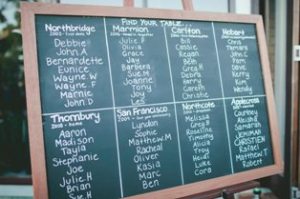 FIND YOUR TABLE...
Northbridge
Debbie
John.A
Bernardette
Eunice
Wayne.W
Wayne.F
Marnie
John.D
Marmion
Julie.H
Olivia
Grace
Jay
Barbera
Sue.M
Joanne
Tony
Les
Carlton
Bis
Cassie
Kegan
Beth
Greg.H
Debra
Harry
Careth
Christie
Hobart
Chris
Tamara
John.C
Pam
David
Deb
Kerry
Kim
Wendy
Thornbury
Aaron
Madison
Tayla
Stephanie
Joe
Julie.H
Brian
Sue
San Francisco
Lyndon
Sophie
Matthew.M
Racheal
Oliver
Kasia
Marc
Ben
Northcote
Melissa
Greg
Rosalina
Timothy
Alicia
Troy
Heidi
Luke
Cora
Applecross
Courtney
Alisha
Samarah
Jemimah
CHRISTIEN
Rafael
Matthew.R
Robert